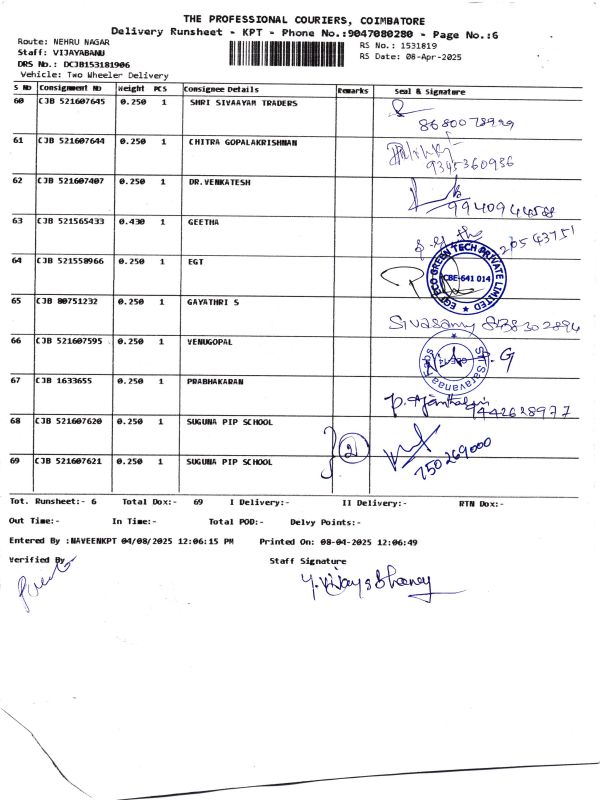 THE PROFESSIONAL COURIERS, COIMBATORE
Delivery Runsheet - KPT - Phone No.:9047080280 - Page No.:6
Route: NEHRU NAGAR
RS No.: 1531819
Staff: VIJAYABANU
RS Date: 08-Apr-2025
DRS No.: DCJB153181906
Vehicle: Two Wheeler Delivery
S No Consignment No Weight PCS Consignee Details Remarks Seal & Signature
60 CJB 521607645 0.250 1 SHRI SIVAAYAM TRADERS
61 CJB 521607644 0.250 1 CHITRA GOPALAKRISHNAN
9345360936
62 CJB 521607407 0.250 1 DR.VENKATESH
63 CJB 521565433 0.430 1 GEETHA
64 CJB 521558966 0.250 1 EGT
EGT ECO GREEN TECH PRIVATE LIMITED
CBE-641 014
65 CJB 80751232 0.250 1 GAYATHRI S
Sivasamy
66 CJB 521607595 0.250 1 VENUGOPAL
Sri Saravanaa
67 CJB 1633655 0.250 1 PRABHAKARAN
9442628977
68 CJB 521607620 0.250 1 SUGUNA PIP SCHOOL
2
69 CJB 521607621 0.250 1 SUGUNA PIP SCHOOL
Tot. Runsheet:- 6 Total Dox:- 69 I Delivery:- II Delivery:- RTN Dox:-
Out Time:- In Time:- Total POD:- Delvy Points:-
Entered By :NAVEENKPT 04/08/2025 12:06:15 PM Printed On: 08-04-2025 12:06:49
Verified By
Staff Signature